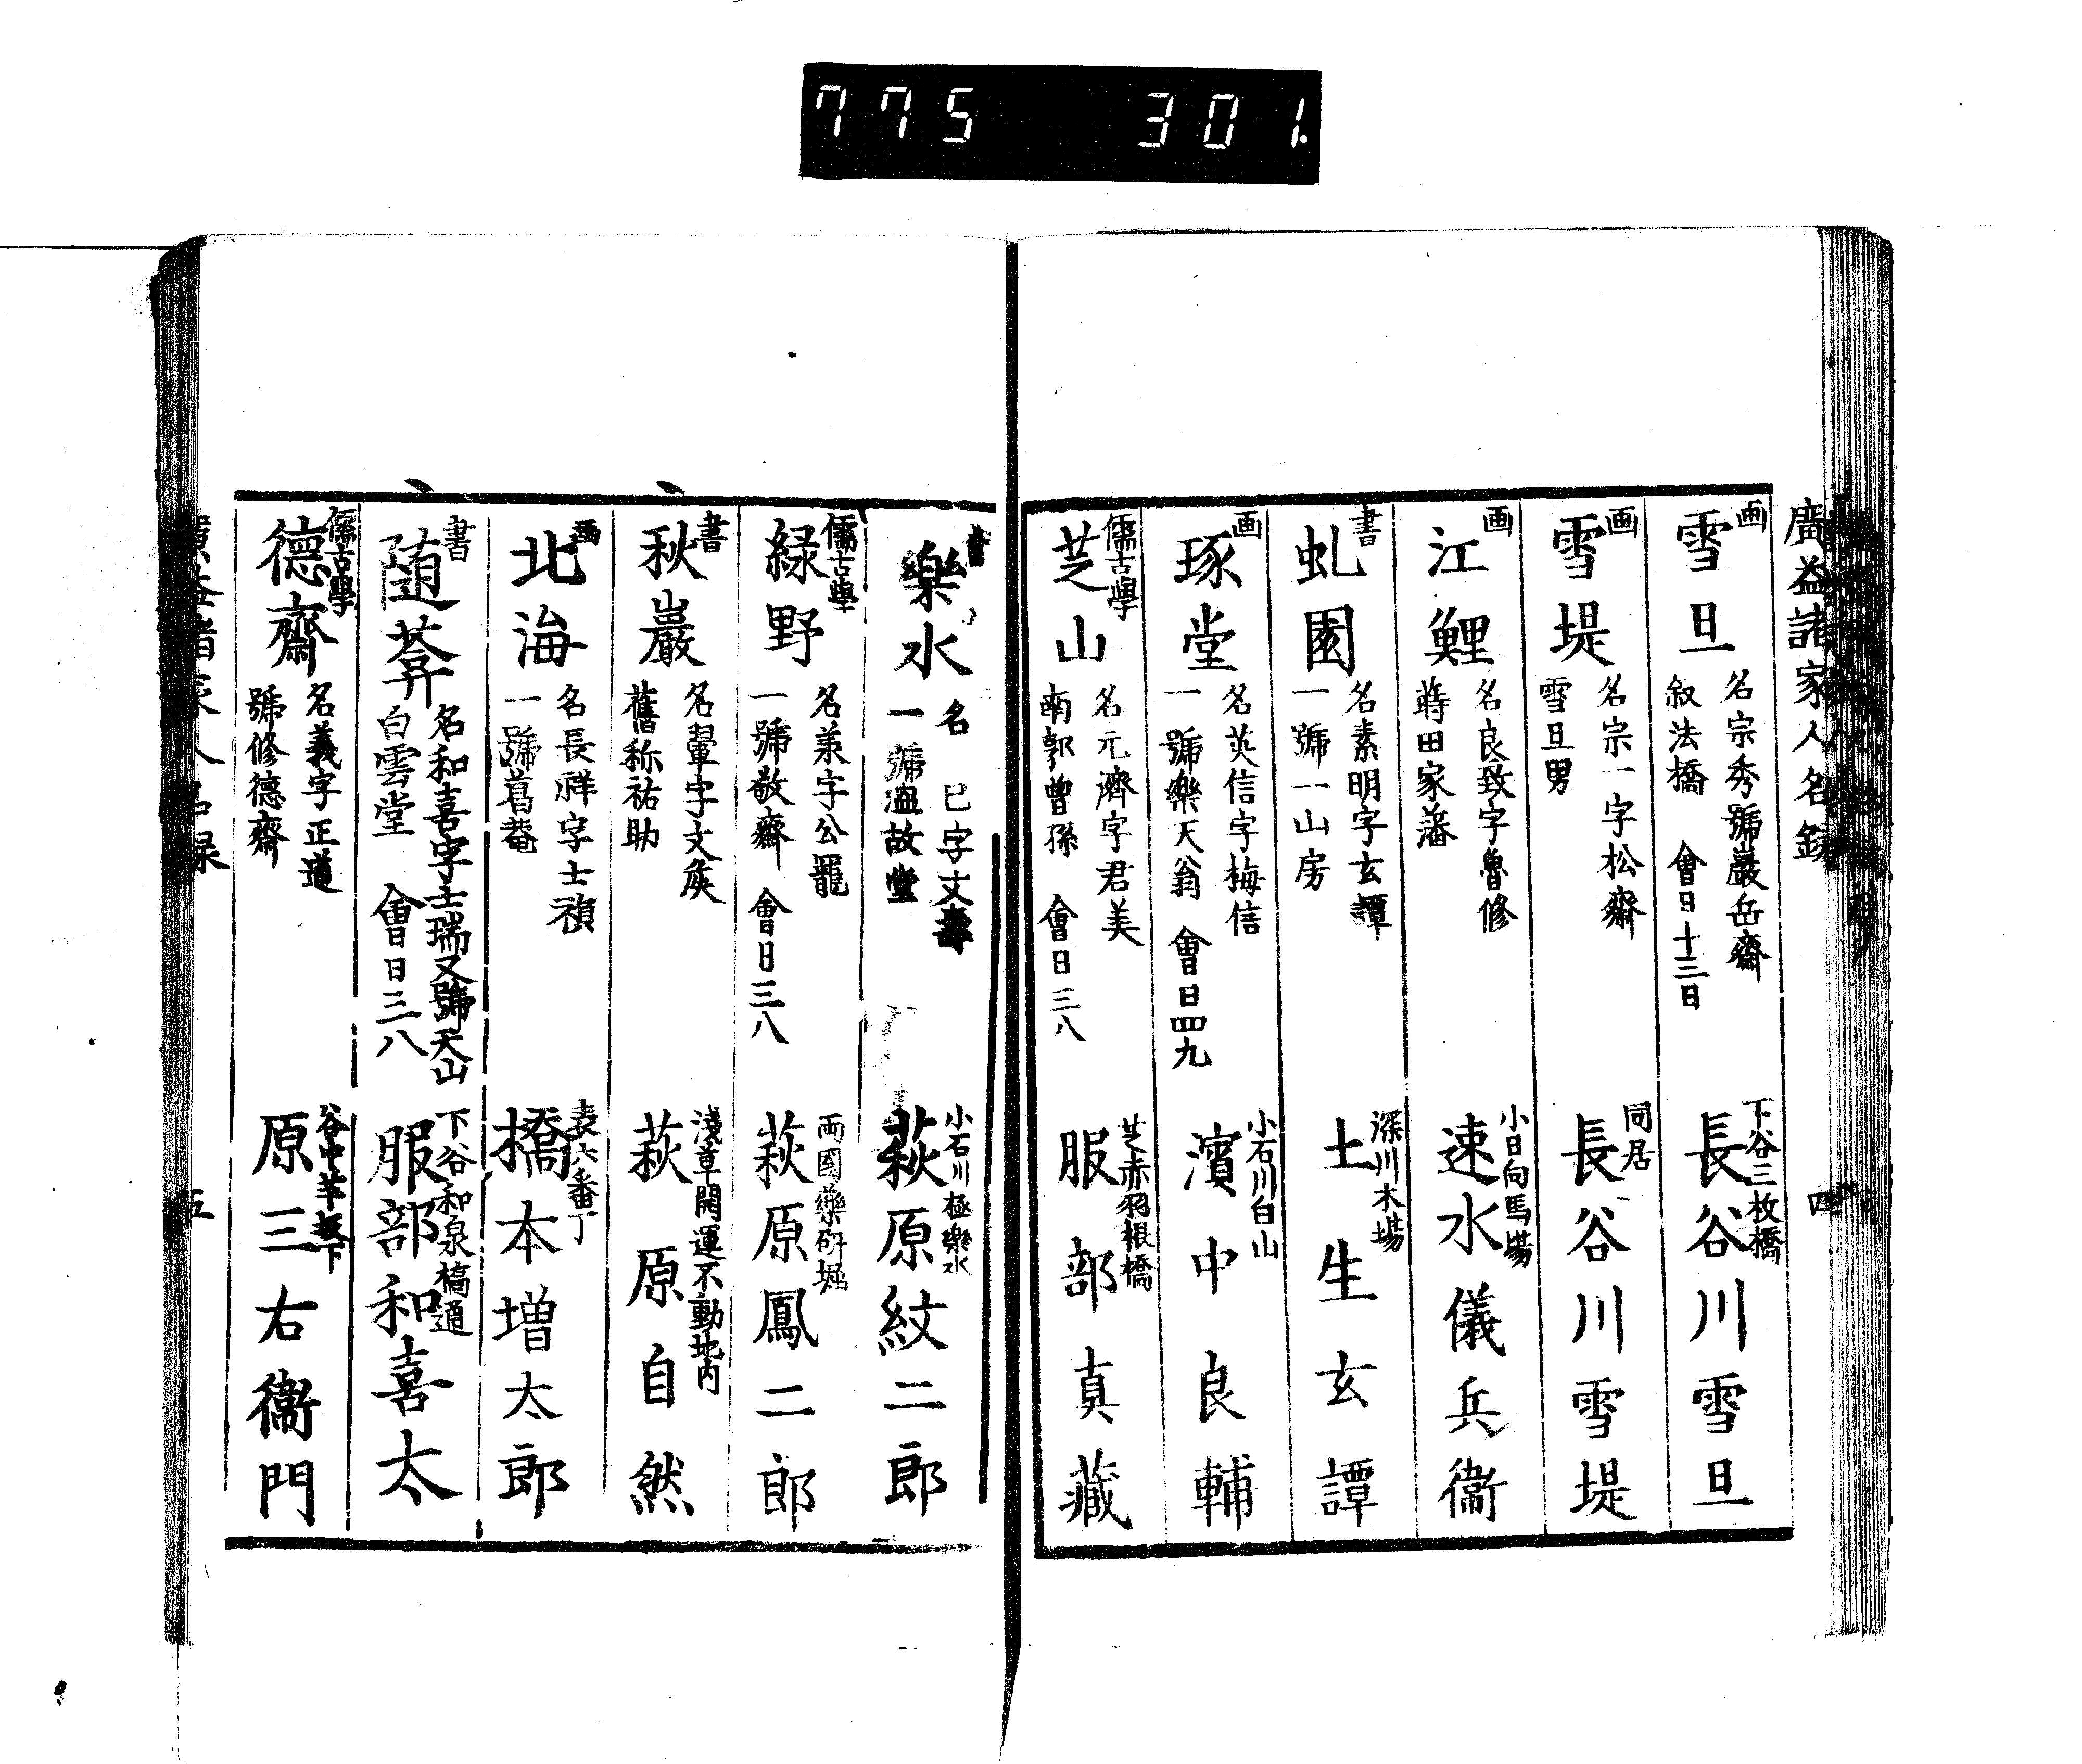 775 301.
廣益諸家人名録
四
画
雪旦
名宗秀號巖岳齋
叙法橋 會日十三日
下谷三枚橋
長谷川雪旦
画
雪堤
名宗一字松齋
雪旦男
同居
長谷川雪堤
画
江鯉
名良致字魯修
蒔田家藩
小日向馬場
速水儀兵衞
書
虬園
名素明字玄譚
一號一山房
深川木場
土生玄譚
画
琢堂
名英信字梅信
一號樂天翁 會日四九
小石川白山
濱中良輔
儒古學
芝山
名元濟字君美
南郭曾孫 會日三八
芝赤羽根橋
服部真藏
書
樂水
名 已字文壽
一號溫故堂
小石川極樂水
萩原紋二郎
儒古學
緑野
名承字公寵
一號敬齋 會日三八
両國藥研堀
萩原鳳二郎
書
秋巖
名翬字文矦
舊称祐助
淺草開運不動地内
萩原自然
画
北海
名長祥字士禎
一號葛菴
表六番丁
橋本増太郎
書
随葊
名和喜字士瑞又號天山
白雲堂 會日三八
下谷和泉橋通
服部和喜太
儒古學
德齋
名義字正道
號修德齋
谷中芋坂下
原三右衞門
廣益諸家人名録
五